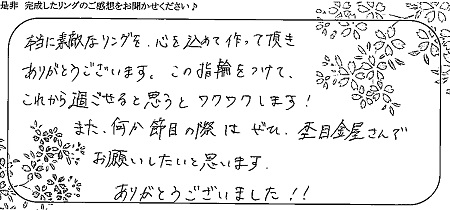 是非 完成したリングのご感想をお聞かせください♪
本当に素敵なリングを、心を込めて作って頂き
ありがとうございます。この指輪をつけて、
これから過ごせると思うとワクワクします!
また、何か節目の際は ぜひ、杢目金屋さんで
お願いしたいと思います。
ありがとうございました!!